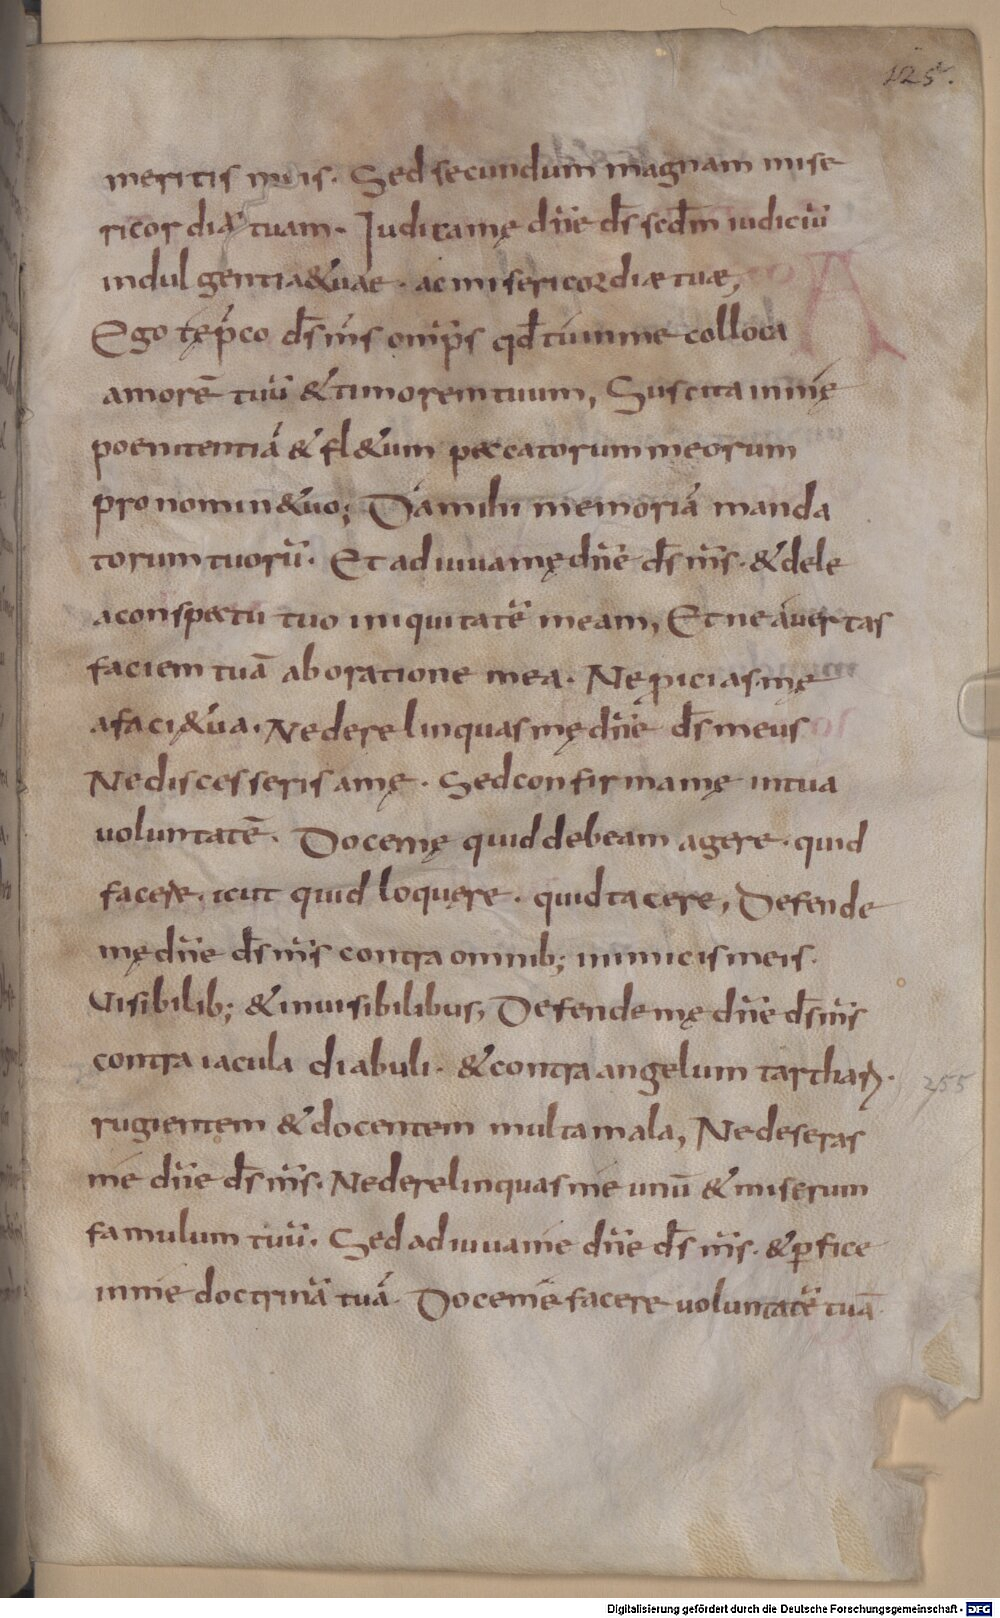 125.
meritis meis. Sed secundum magnam mise
ricordiā tuam. Iudica mę dn̄e ds̄ secdm̄ iudiciū
indulgentia&uae. ac misericordiæ tuæ,
Ego tę p̄co ds̄ ms̄ omp̄s qd̄ tu in me colloca
amorē tuū & timorem tuum, Suscita in mę
poenitentiā & fl&um peccatorum meorum
pro nomin&uo; Da mihi memoriā manda
torum tuorū. Et adiuua mę dn̄e ds̄ ms̄. & dele
a conspectu tuo iniquitatē meam, Et ne auertas
faciem tuā ab oratione mea. Ne ꝓicias mę
a faci&ua. Ne derelinquas mę dn̄e ds̄ meus
Ne discesseris a mę. Sed confirma mę in tua
uoluntatē. Doce mę quid debeam agere. quid
facere. icut quid loquere. quid tacere, Defende
mę dn̄e ds̄ ms̄ contra omnib; inimicis meis.
Uisibilib; & inuisibilibus, Defende mę dn̄e ds̄ ms̄
contra iacula diabuli. & contra angelum tarthaꝝ.
255
rugientem & docentem multa mala, Ne deseras
me dn̄e ds̄ ms̄. Ne derelinquas me unū & miserum
famulum tuū. Sed adiuua me dn̄e ds̄ ms̄. & ꝑfice
in me doctrinā tuā. Doce me facere uoluntatē tuā
Digitalisierung gefördert durch die Deutsche Forschungsgemeinschaft - DFG